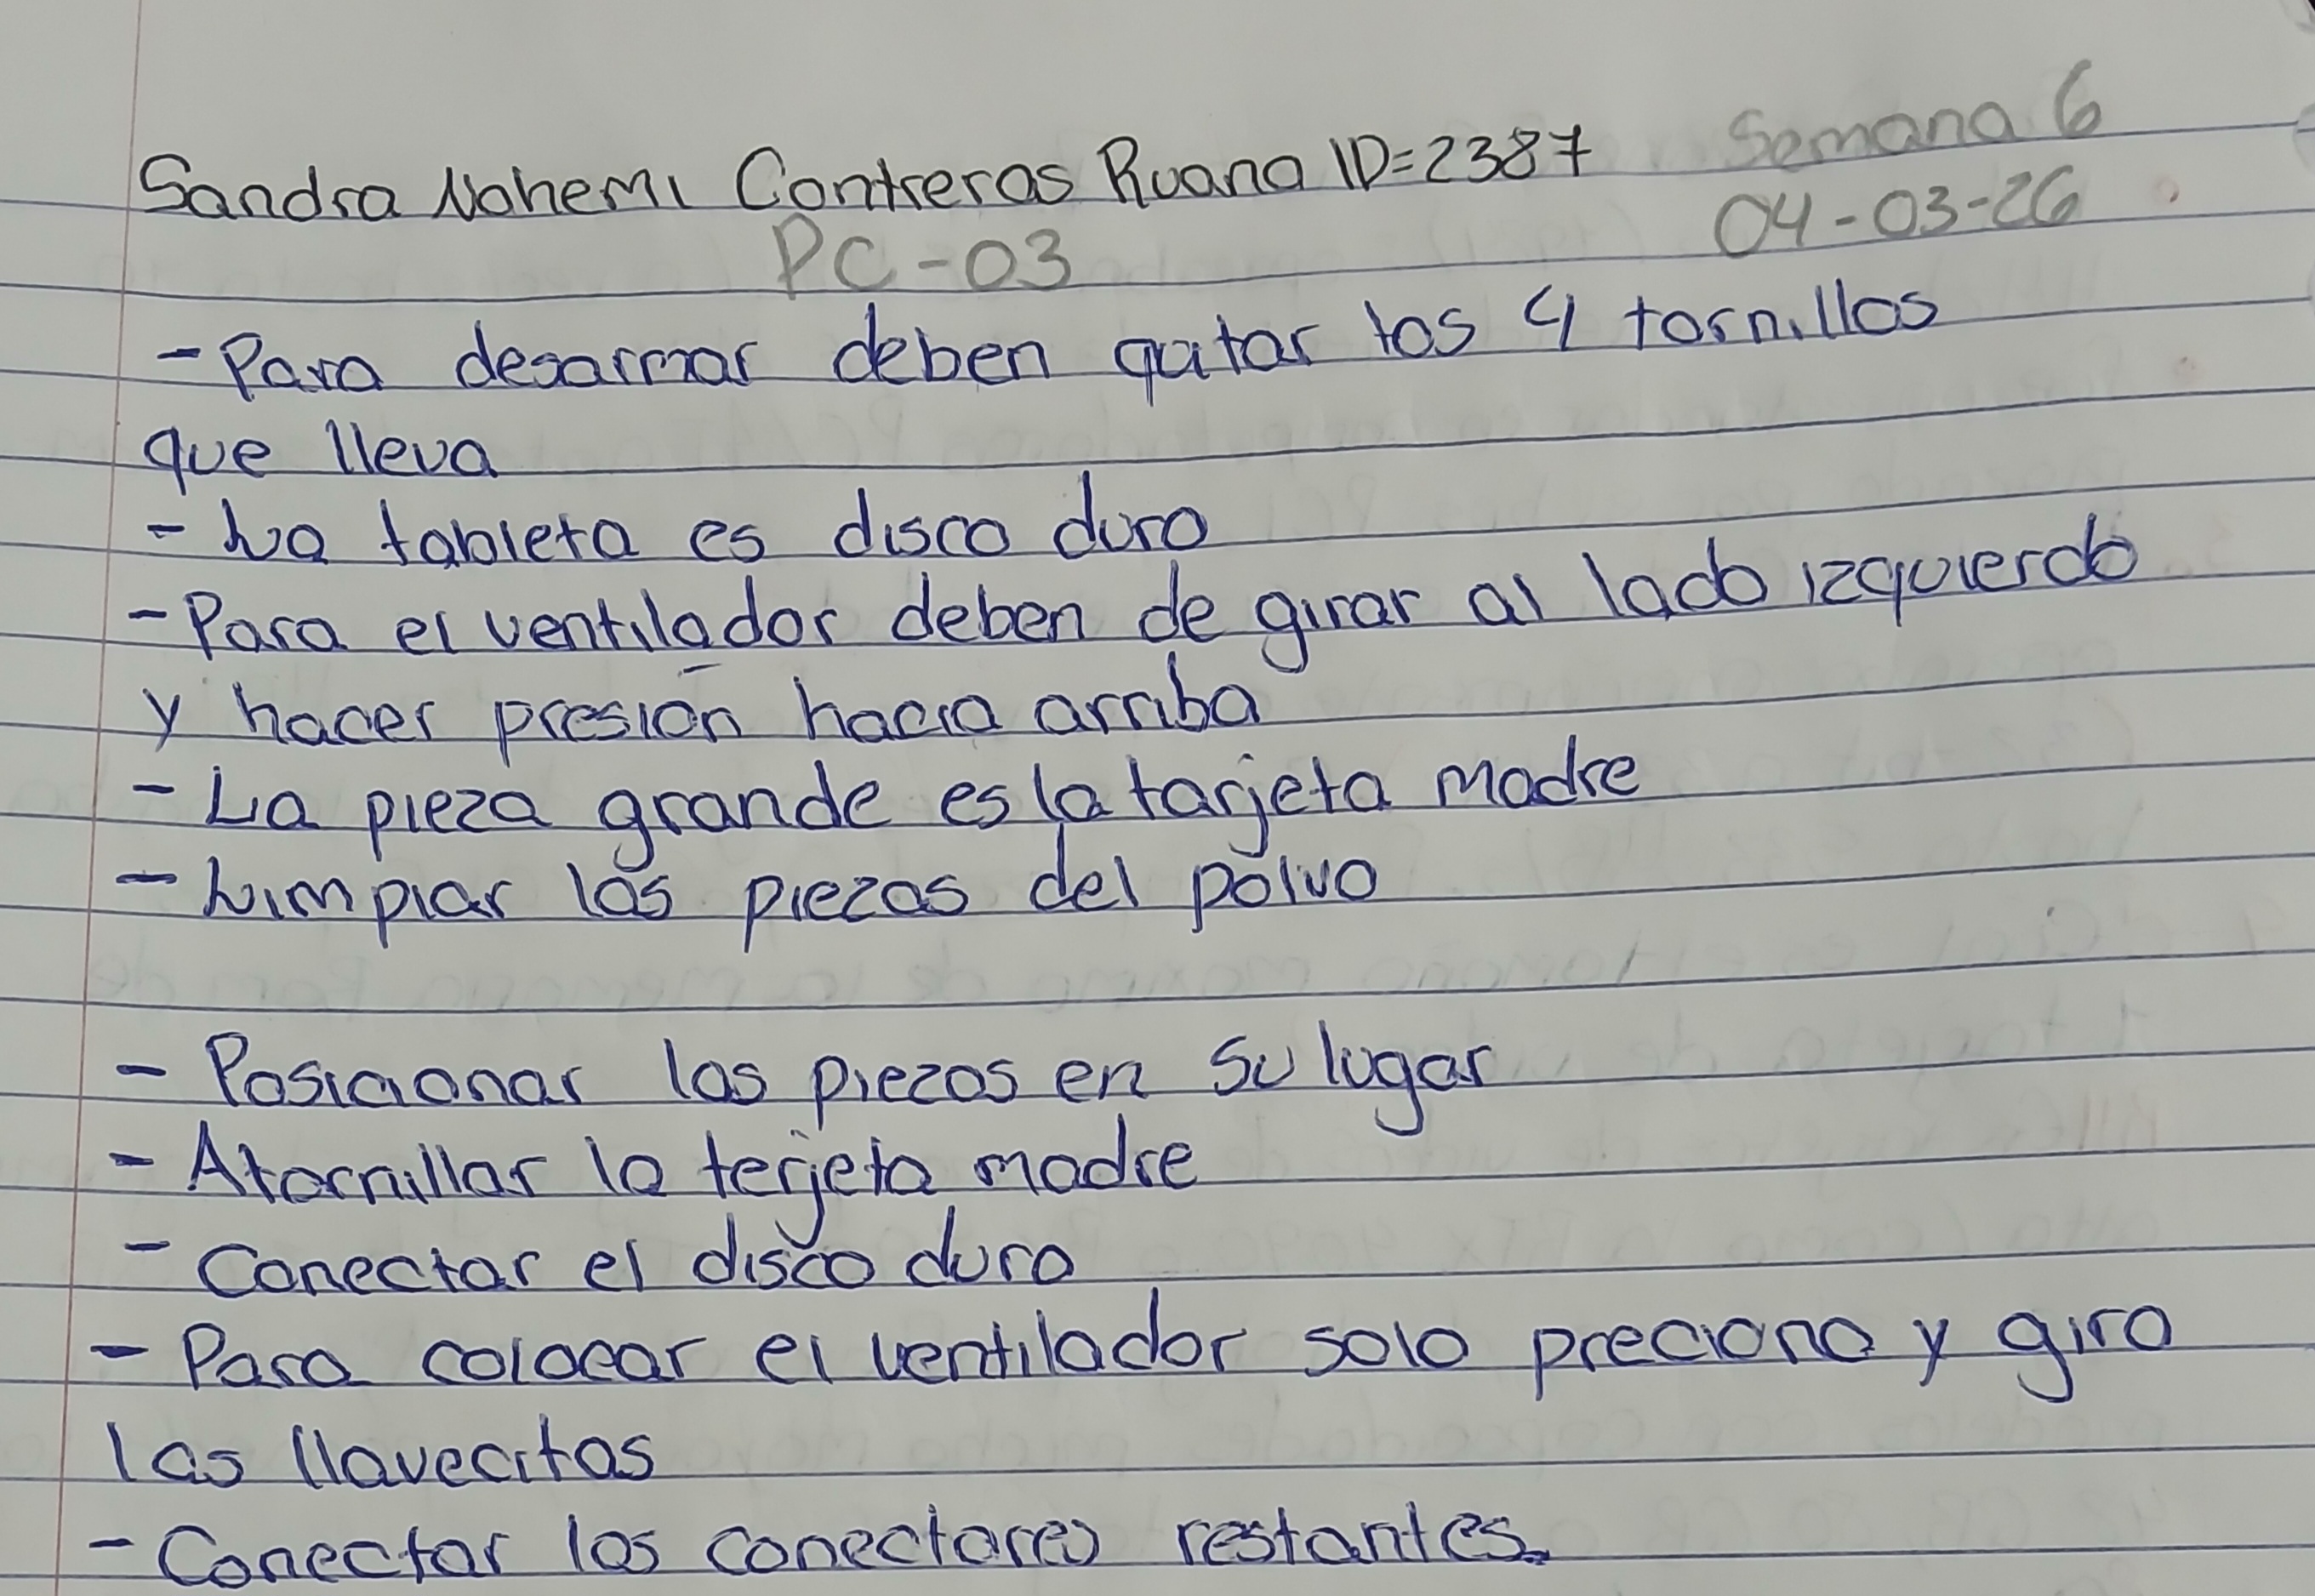 Semana 6
Sandra Nohemi Contreras Ruano ID=2387
04-03-26
PC-03
- Para desarmar deben quitar los 4 tornillos
que lleva
- La tableta es disco duro
- Para el ventilador deben de girar al lado izquierdo
y hacer presión hacia arriba
- La pieza grande es la tarjeta madre
- Limpiar las piezas del polvo
- Posicionar las piezas en su lugar
- Atornillar la terjeta madre
- Conectar el disco duro
- Para colocar el ventilador solo preciono y giro
las llavecitas
- Conectar los conectores restantes.